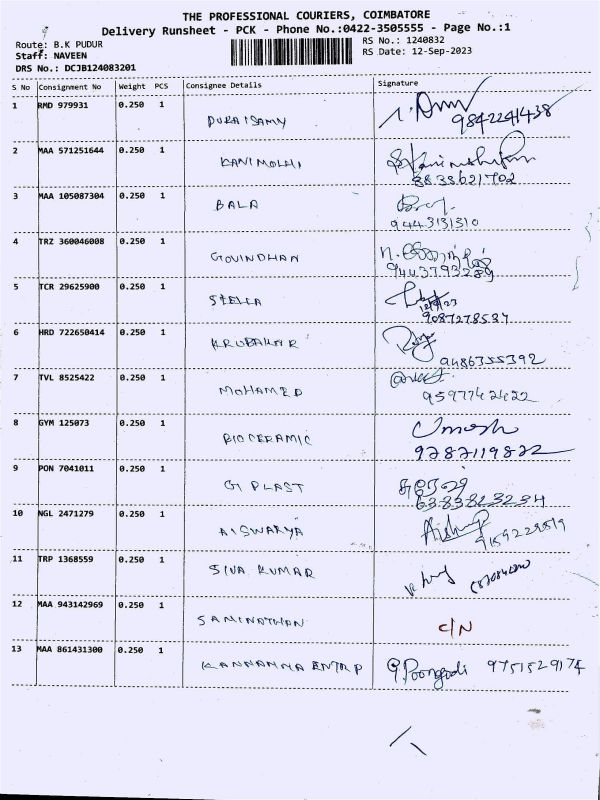 THE PROFESSIONAL COURIERS, COIMBATORE
Delivery Runsheet - PCK - Phone No.:0422-3505555 - Page No.:1
Route: B.K PUDUR
Staff: NAVEEN
DRS No.: DCJB124083201
RS No.: 1240832
RS Date: 12-Sep-2023
S No Consignment No Weight PCS Consignee Details Signature
1 RMD 979931 0.250 1 DURAISAMY
9842241438
2 MAA 571251644 0.250 1 KANIMOLHI
8838621702
3 MAA 105087304 0.250 1 BALA
9443131310
4 TRZ 360046008 0.250 1 GOVINDHAN
9443793289
5 TCR 29625900 0.250 1 STELLA
12/9/23
9087278537
6 HRD 722650414 0.250 1 KRUBAKAR
9486355392
7 TVL 8525422 0.250 1 MOHAMED
9597742422
8 GYM 125073 0.250 1 BIOCERAMIC Umesh
9787119822
9 PON 7041011 0.250 1 GI PLAST
6383823234
10 NGL 2471279 0.250 1 AISWARYA
9159229519
11 TRP 1368559 0.250 1 SIVA KUMAR
12 MAA 943142969 0.250 1 SAMINATHAN C/N
13 MAA 861431300 0.250 1 KANNAMMA ENTRP P.Poongodi 9751529174